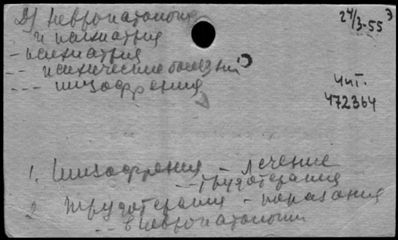 Д) невропатология
и психиатрия
- психиатрия
-- психические болезни
--- шизофрения
24/3-55 э
чит.
472364
1. Шизофрения - лечение
- трудотерапия
2. Трудотерапия - показания
- в невропатологии